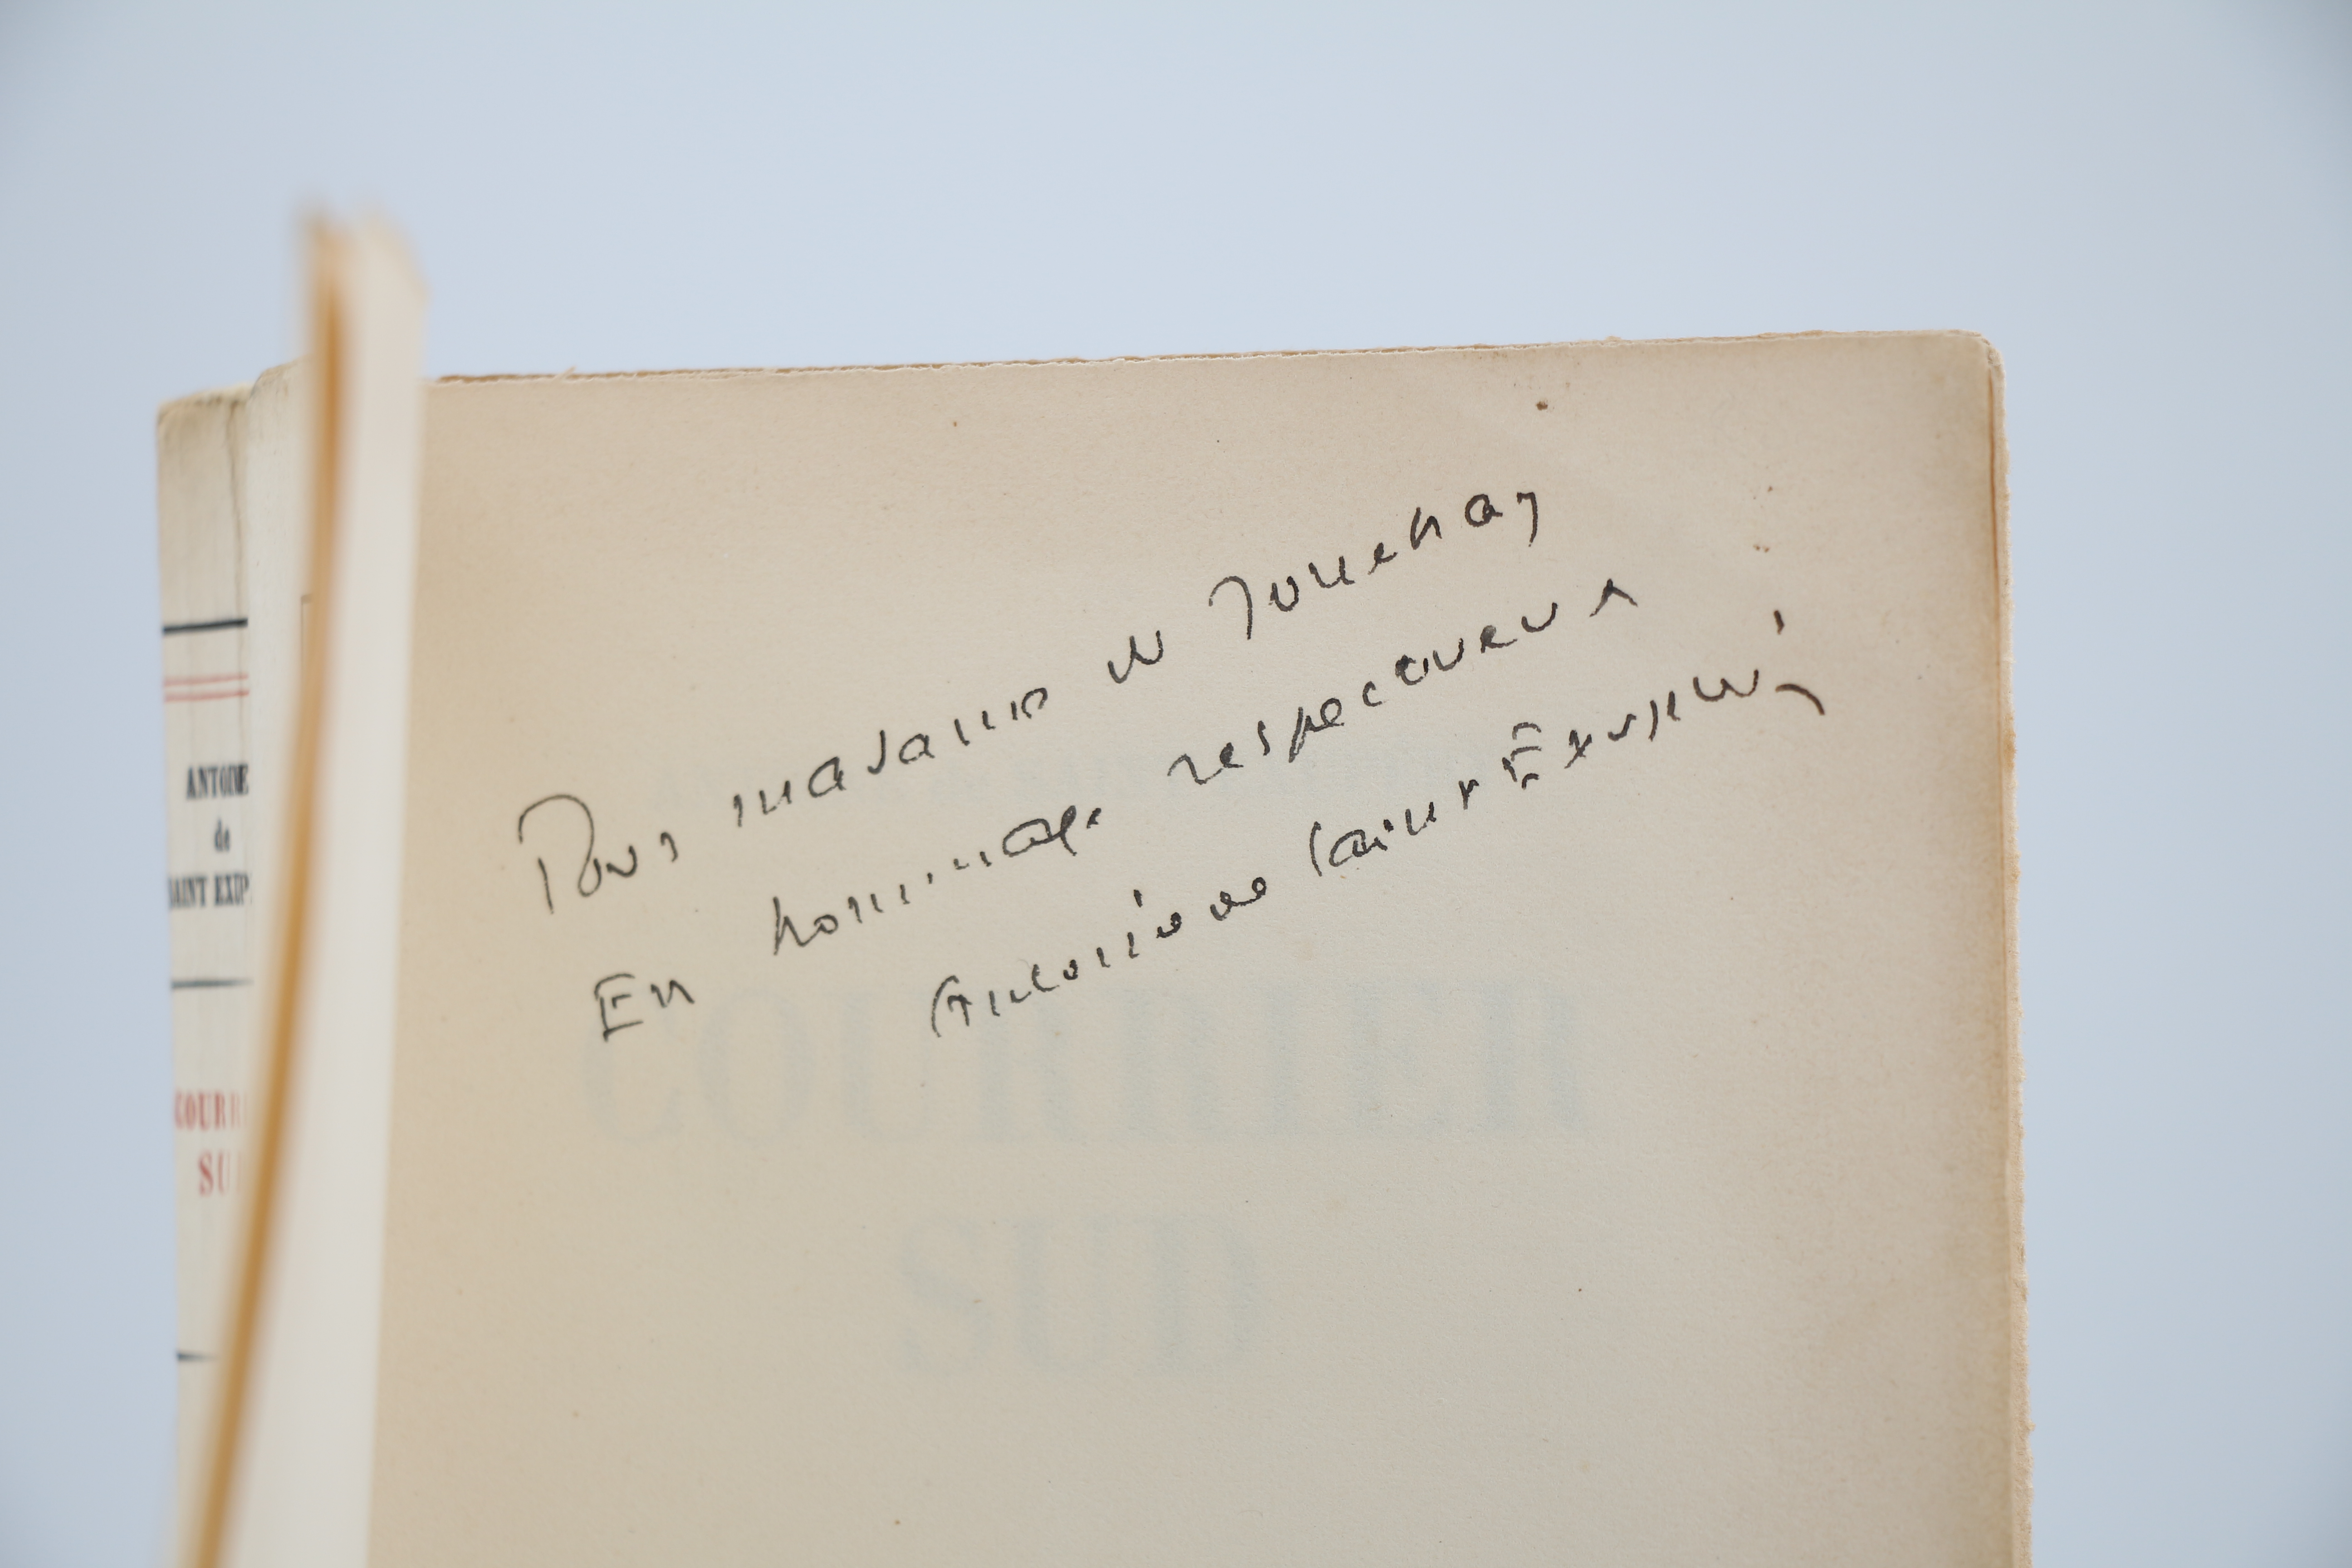 ANTOINE
de
SAINT EXUP
COURRI
SU
Pour madame de
En hommage respectueux
Antoine de Saint Exupéry
COURRIER
SUD